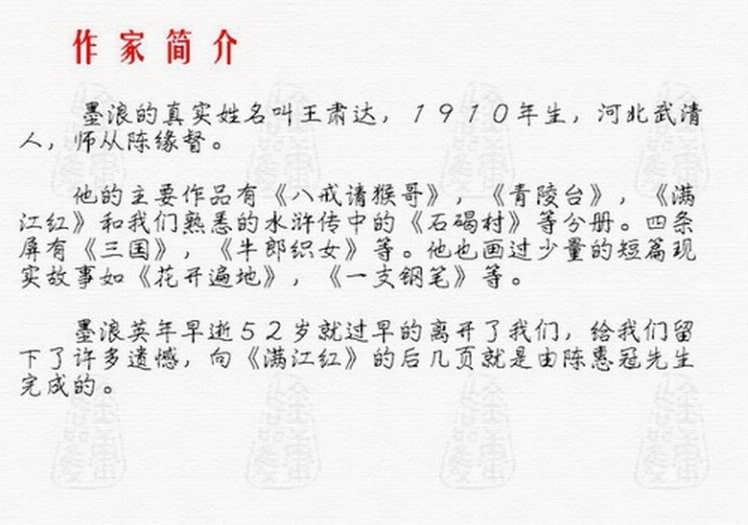 作家简介
墨浪的真实姓名叫王肃达，１９１０年生，河北武清
人，师从陈缘督。
他的主要作品有《八戒请猴哥》，《青陵台》，《满
江红》和我们熟悉的水浒传中的《石碣村》等分册。四条
屏有《三国》，《牛郎织女》等。他也画过少量的短篇现
实故事如《花开遍地》，《一支钢笔》等。
墨浪英年早逝５２岁就过早的离开了我们，给我们留
下了许多遗憾，向《满江红》的后几页就是由陈惠冠先生
完成的。